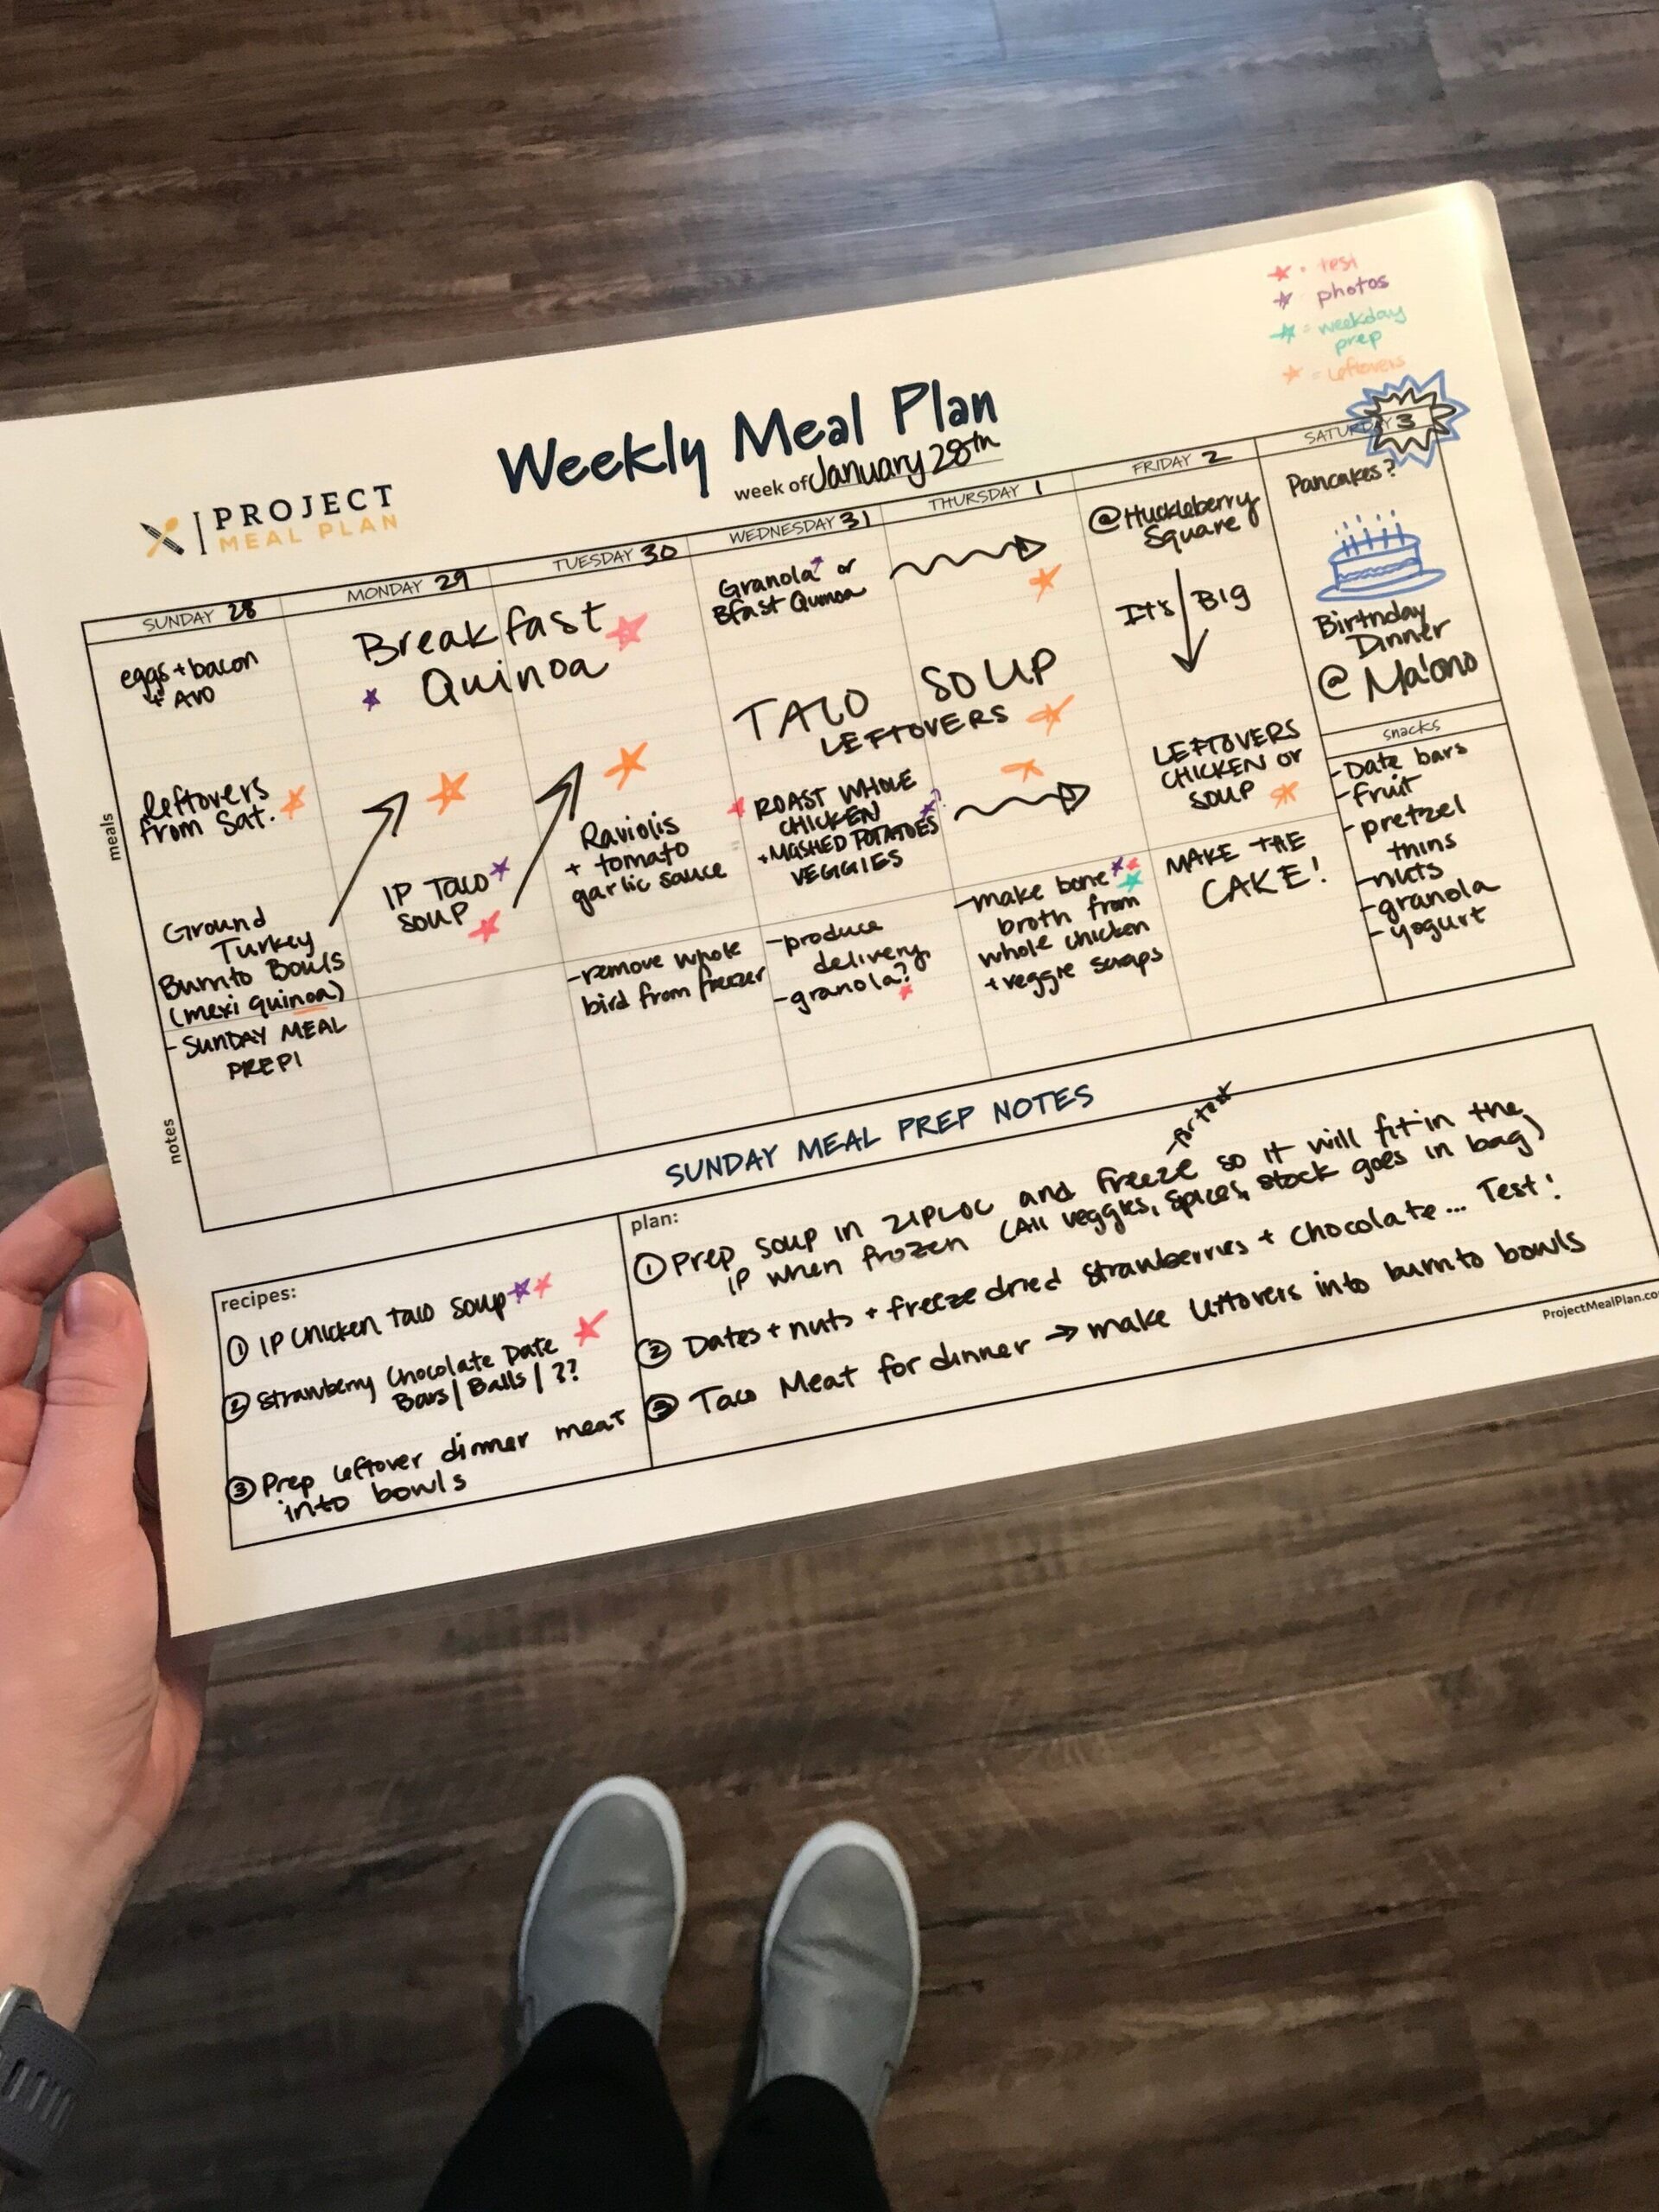 ★ = test
★ photos
★ = weekday
prep
★ = leftovers
Weekly Meal Plan
week of January 28th
PROJECT
MEAL PLAN
SUNDAY 28
MONDAY 29
TUESDAY 30
WEDNESDAY 31
THURSDAY 1
FRIDAY 2
SATURDAY 3
meals
eggs + bacon
+ AVO
Leftovers
from Sat.
Ground
Turkey
Burrito Bowls
(mexi quinoa)
Breakfast
Quinoa
IP TACO
SOUP
Raviolis
+ tomato
garlic sauce
Granola or
Bfast Quinoa
TACO SOUP
LEFTOVERS
ROAST WHOLE
CHICKEN
+ MASHED POTATOES
VEGGIES
@Huckleberry
Square
It's Big
LEFTOVERS
CHICKEN OR
SOUP
Pancakes?
Birthday
Dinner
@ Ma'ono
snacks
- Date bars
- fruit
- pretzel
thins
- nuts
- granola
- yogurt
notes
- SUNDAY MEAL
PREP!
- remove whole
bird from freezer
- produce
delivery
- granola?
- make bone
broth from
whole chicken
+ veggie scraps
MAKE THE
CAKE!
SUNDAY MEAL PREP NOTES
recipes:
① IP Chicken Taco Soup
② Strawberry Chocolate Date
Bars / Balls / ??
③ Prep leftover dinner meat
into bowls
plan:
① Prep soup in ZIPLOC and freeze so it will fit in the
IP when frozen (All veggies, spices, stock goes in bag)
② Dates + nuts + freeze dried strawberries + chocolate... Test!
③ Taco Meat for dinner → make leftovers into burrito bowls